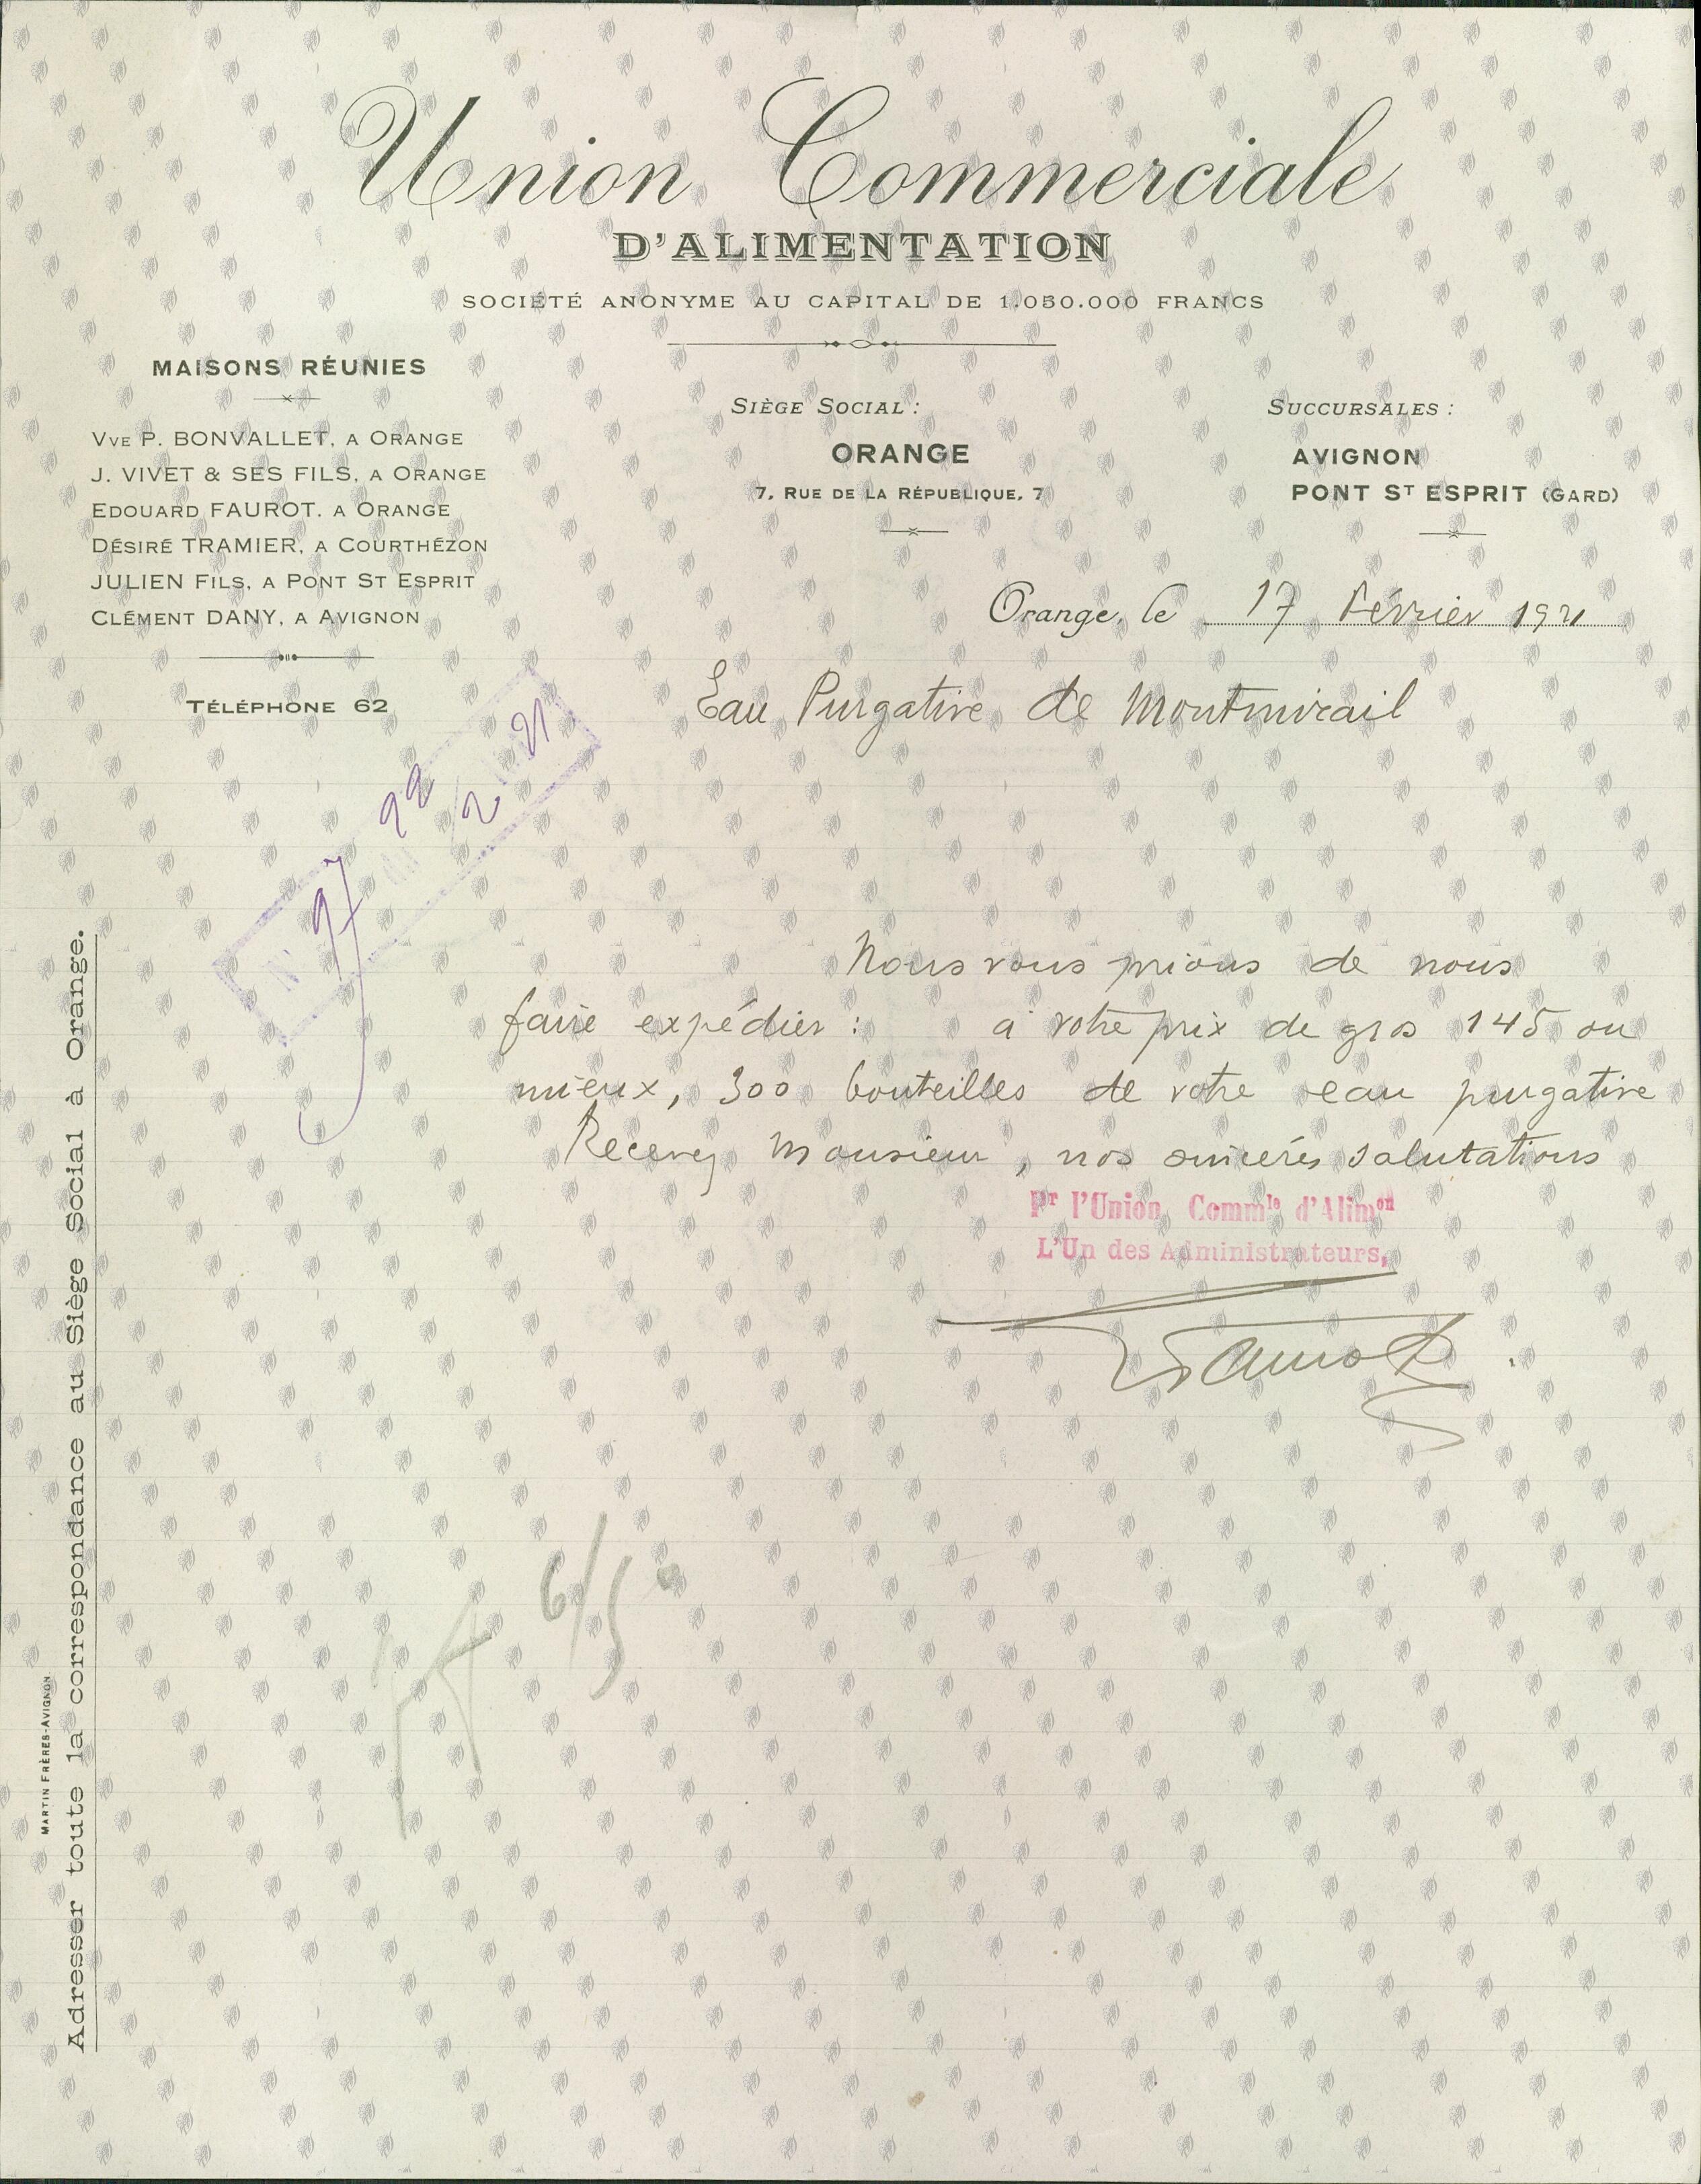 Union Commerciale
D'ALIMENTATION
SOCIÉTÉ ANONYME AU CAPITAL DE 1.050.000 FRANCS
MAISONS RÉUNIES
VVE P. BONVALLET, A ORANGE
J. VIVET & SES FILS, A ORANGE
EDOUARD FAUROT. A ORANGE
DÉSIRÉ TRAMIER, A COURTHÉZON
JULIEN FILS, A PONT ST ESPRIT
CLÉMENT DANY, A AVIGNON
TÉLÉPHONE 62
SIÈGE SOCIAL :
ORANGE
7, RUE DE LA RÉPUBLIQUE, 7
SUCCURSALES :
AVIGNON
PONT ST ESPRIT (GARD)
Orange, le 17 Février 1921
Eau Purgative de Montmirail
N° 97 du 22/2 21
Nous vous prions de nous
faire expédier : a votre prix de gros 145 ou
mieux, 300 bouteilles de votre eau purgative
Recevez Monsieur, nos sincéres salutations
Pr l'Union Commle d'Alimon
L'Un des Administrateurs,
Faurot
6/5
Adresser toute la correspondance au Siège Social à Orange.
MARTIN FRÈRES-AVIGNON